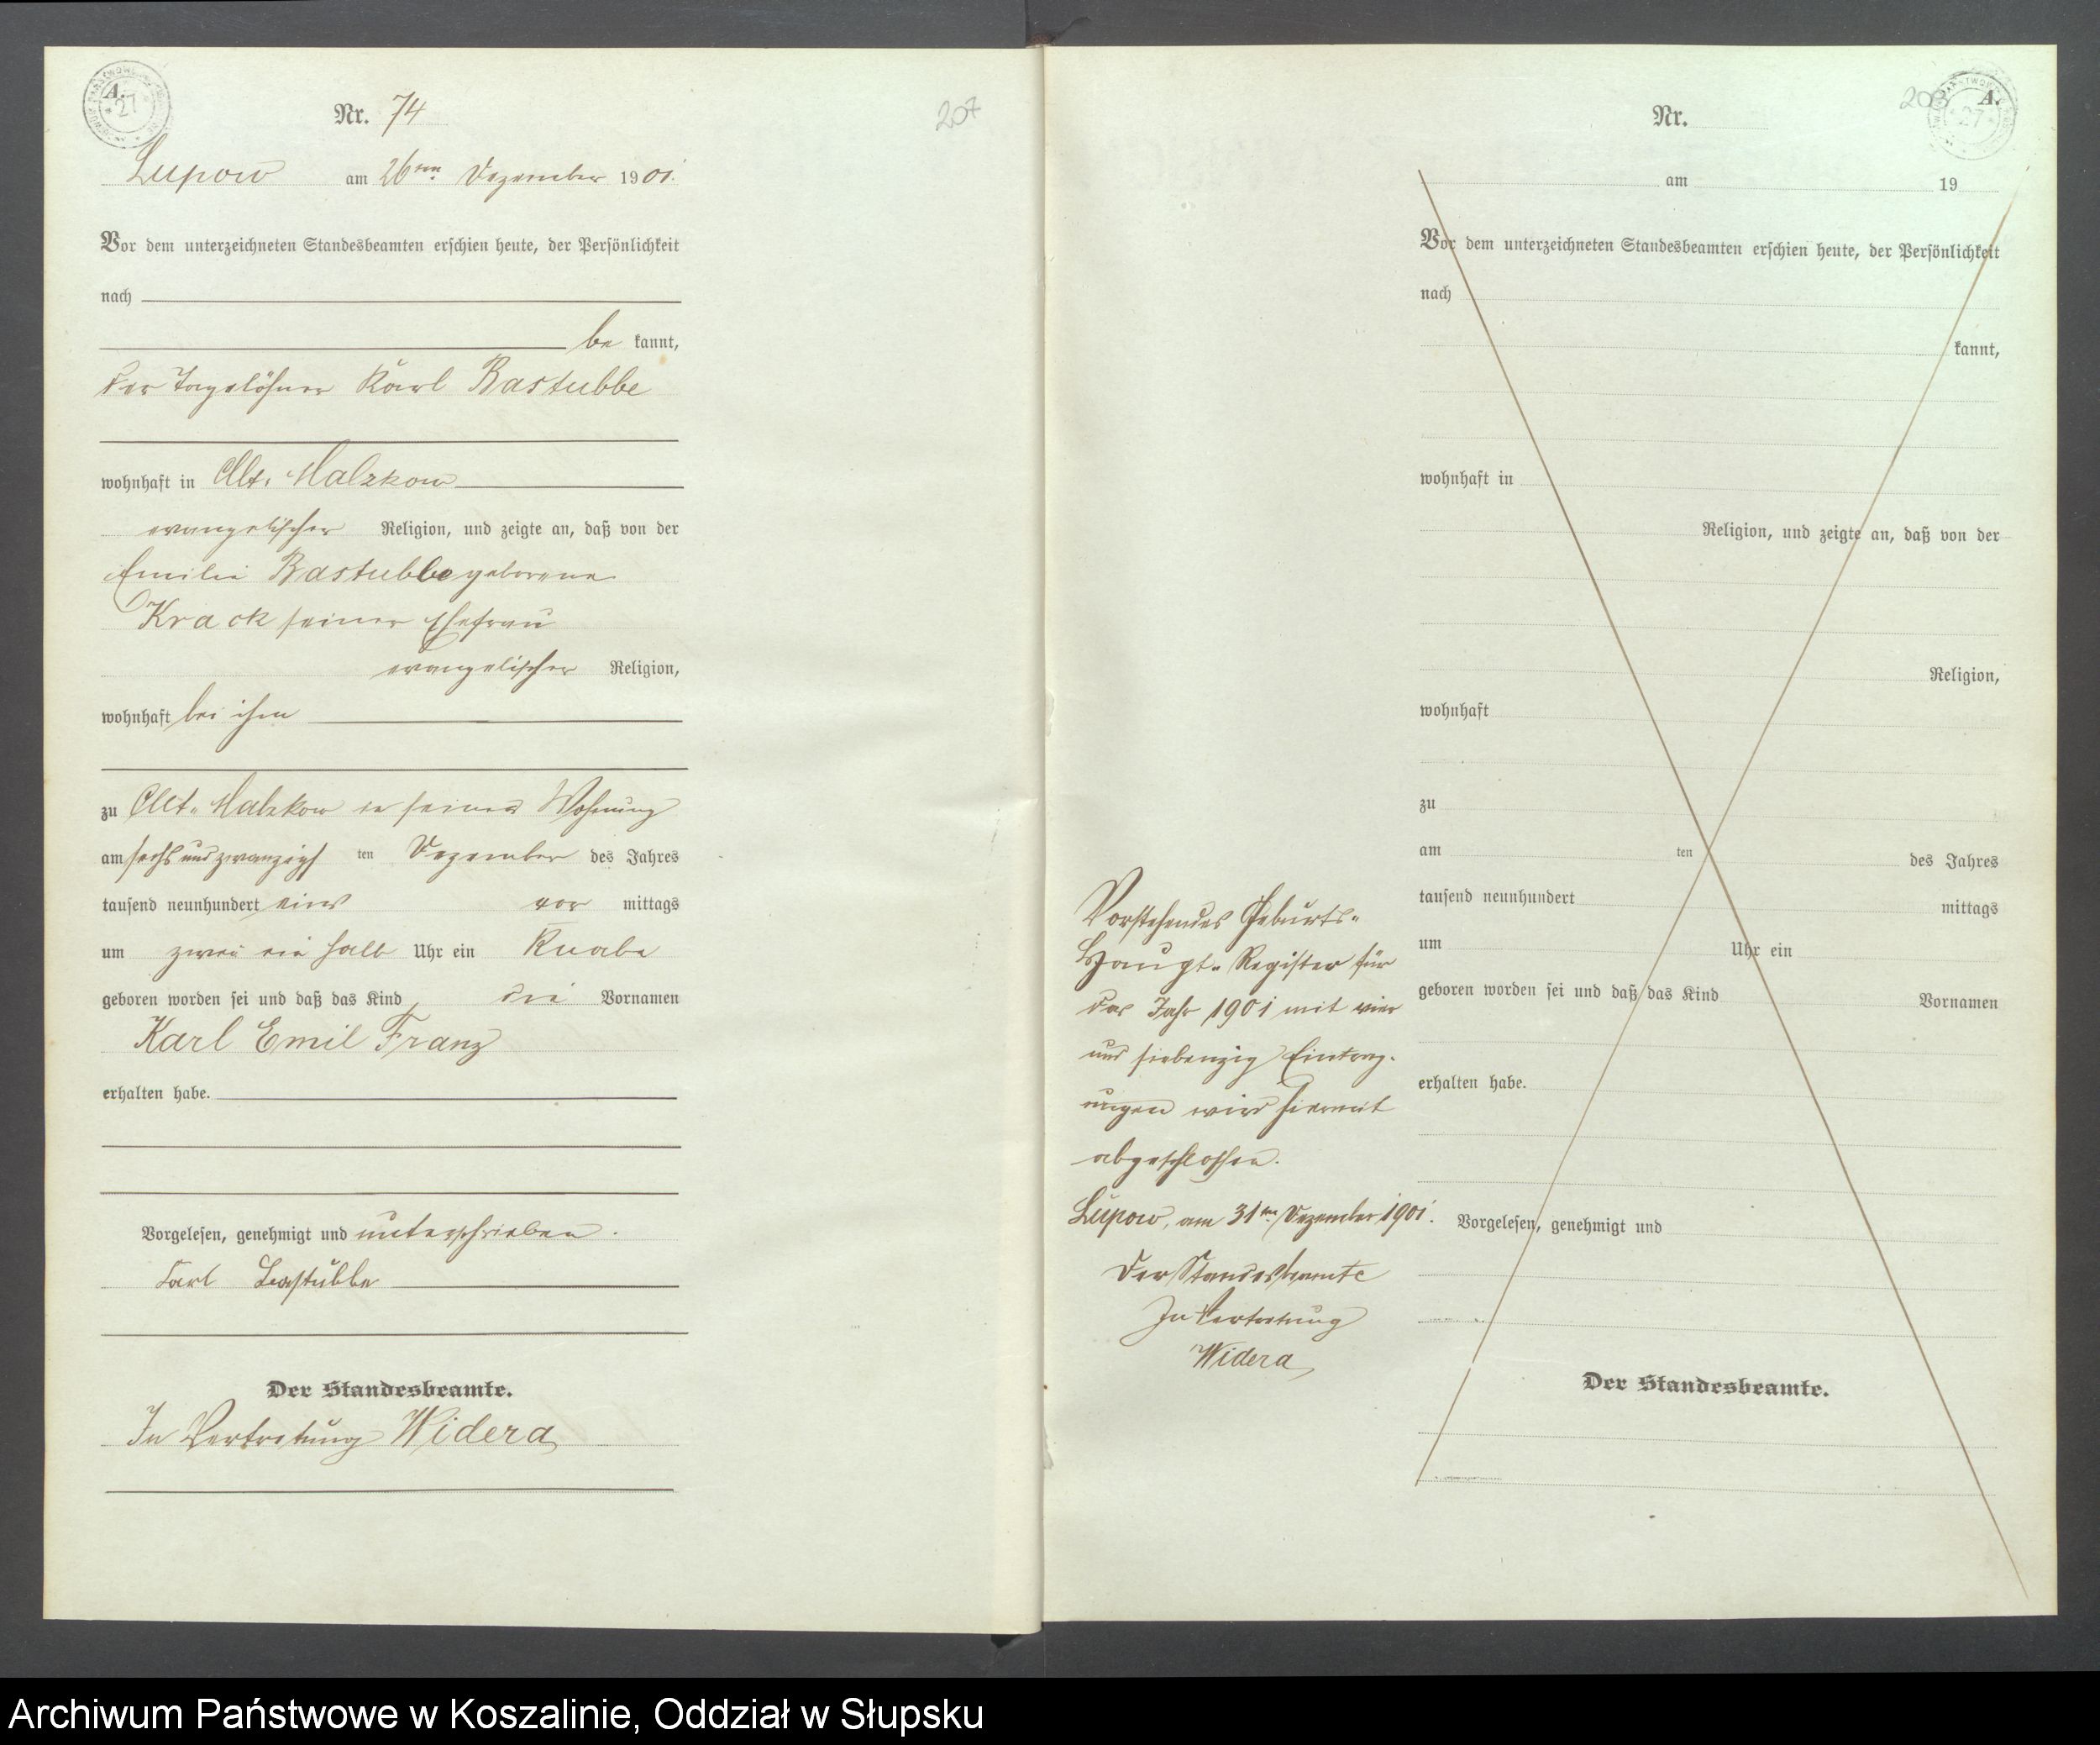 A.
Nr. 74
207
Lupow am 26ten Dezember 1901.
Vor dem unterzeichneten Standesbeamten erschien heute, der Persönlichkeit
nach
be kannt,
der Tagelöhner Karl Bastubbe
wohnhaft in Alt Malzkow
evangelischer Religion, und zeigte an, daß von der
Emilie Bastubbe geborene
Krack seiner Ehefrau
evangelischer Religion,
wohnhaft bei ihm
zu Alt Malzkow in seiner Wohnung
am sechs und zwanzigsten Dezember des Jahres
tausend neunhundert eins vor mittags
um zwei ein halb Uhr ein Knabe
geboren worden sei und daß das Kind die Vornamen
Karl Emil Franz
erhalten habe.
Vorgelesen, genehmigt und unterschrieben.
Karl Bastubbe
Der Standesbeamte.
In Vertretung Widera
208 A.
Nr.
am 19
Vor dem unterzeichneten Standesbeamten erschien heute, der Persönlichkeit
nach
kannt,
wohnhaft in
Religion, und zeigte an, daß von der
Religion,
wohnhaft
zu
am ten des Jahres
tausend neunhundert mittags
um Uhr ein
geboren worden sei und daß das Kind Vornamen
erhalten habe.
Vorgelesen, genehmigt und
Der Standesbeamte.
Vorstehendes Geburts-
Haupt-Register für
das Jahr 1901 mit vier
und siebenzig Eintrag-
ungen wird hiermit
abgeschlossen.
Lupow, am 31ten Dezember 1901.
Der Standesbeamte
In Vertretung
Widera
Archiwum Państwowe w Koszalinie, Oddział w Słupsku